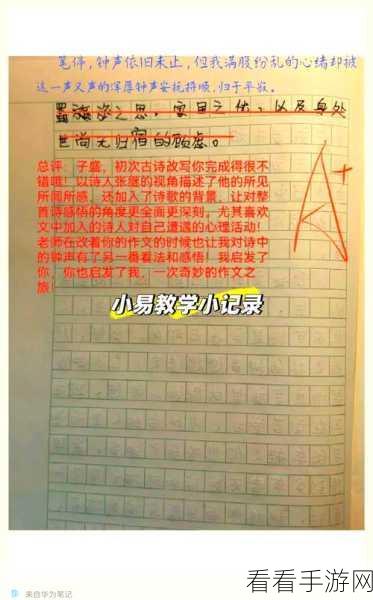 笔停，钟声依旧未止，但我满腹纷乱的心绪却被
这一声又声的浑厚钟声安抚捋顺，归于平寂。
之思，
世尚无归宿的顾虑。
总评：子盛，初次古诗改写你完成得很不
错哦！以诗人张继的视角描述了他的所见
所闻所感，还加入了诗歌的背景，让对整
首诗感悟的角度更全面更深刻。尤其喜欢
文中加入的诗人对自己遭遇的心理活动！
老师在改着你的作文的时候也让我对诗中
的钟声有了另一番看法和感悟！我启发了
你，你也启发了我，一次奇妙的作文之
旅！
A+
小易教学小记录
来自华为笔记
看看手游网